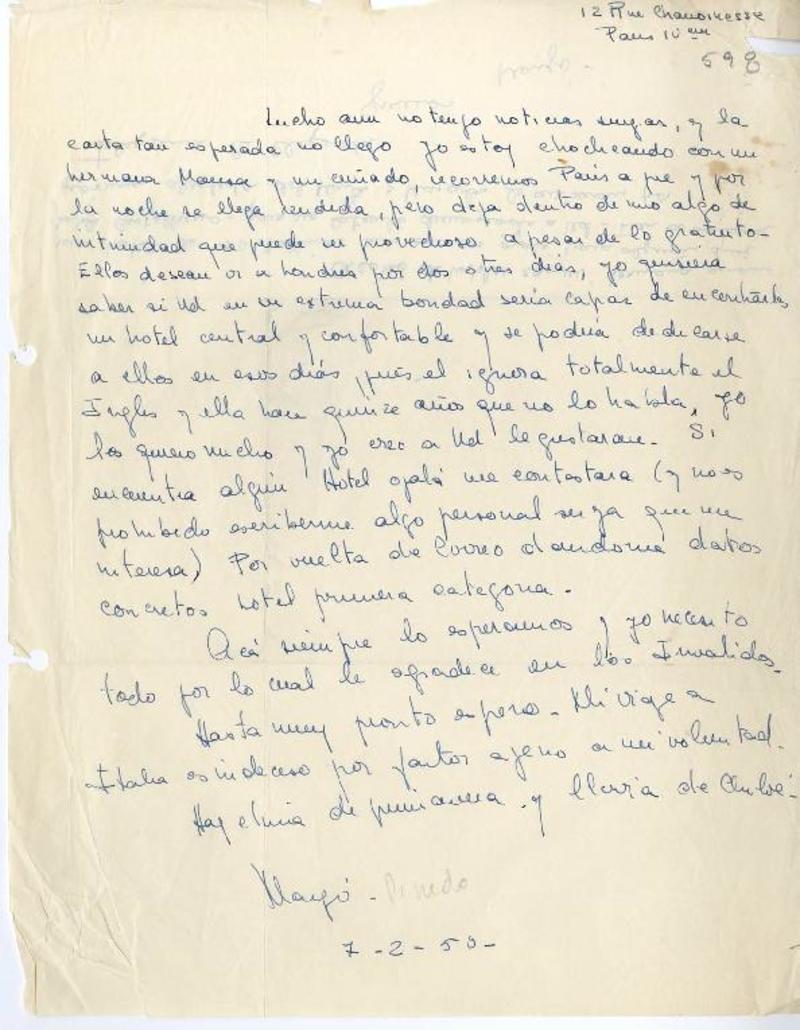 12 Rue Chanoinesse
Paris IV em
598
pronto.
Lucho aun no tengo noticias suyas, y la
carta tan esperada no llego yo estoy chocheando con mi
hermana y mi cuñado, recorremos Paris a pie y por
la noche se llega rendida, pero deja dentro de mio algo de
intimidad que puede ser provechoso a pesar de lo gratuito-
Ellos desean ir a Londres por dos o tres diás, yo quisiera
saber si Ud en su extrema bondad seria capaz de encontrarles
un hotel central y confortable y se podria dedicarse
a ellos en esos diás, pués el ignora totalmente el
Ingles y ella hace quinze años que no lo habla, yo
los quiero mucho y yo creo a Ud le gustaran- Si
encuentra algún Hotel ojalá me contestara (y no es
prohibido escriberme algo personal suya que me
interesa) Por vuelta de Correo dandome datos
concretos hotel primera categoria.
Acá siempre lo esperamos y yo necesito
todo por lo cual le agradece en los Invalidos.
Hasta muy pronto espero- Mi viaje a
Italia es indeciso por factor ajeno a mi voluntad.
Hay clima de primavera. y lluvia de Chiloé-
Mayó - Pinedo
7-2-50-